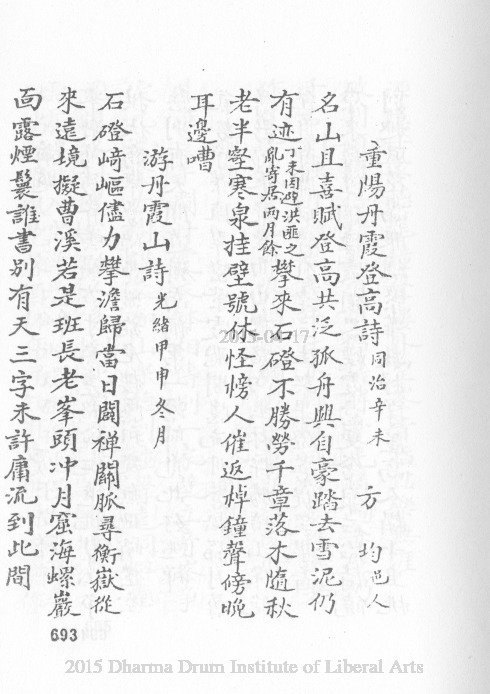 重陽丹霞登高詩同治辛未 方 均邑人
名山且喜賦登高共泛孤舟興自豪踏去雪泥仍
有迹丁未因避洪匪之亂寄居兩月餘攀來石磴不勝勞千章落木隨秋
老半壑寒泉挂壁號休怪傍人催返棹鐘聲傍晚
耳邊嘈
游丹霞山詩光緒甲申冬月
石磴崎嶇儘力攀澹歸當日闢禅關脈尋衡嶽從
來遠境擬曹溪若是班長老峯頭冲月窟海螺巖
面露煙鬟誰書別有天三字未許庸流到此間
693
2015-04-17
2015 Dharma Drum Institute of Liberal Arts